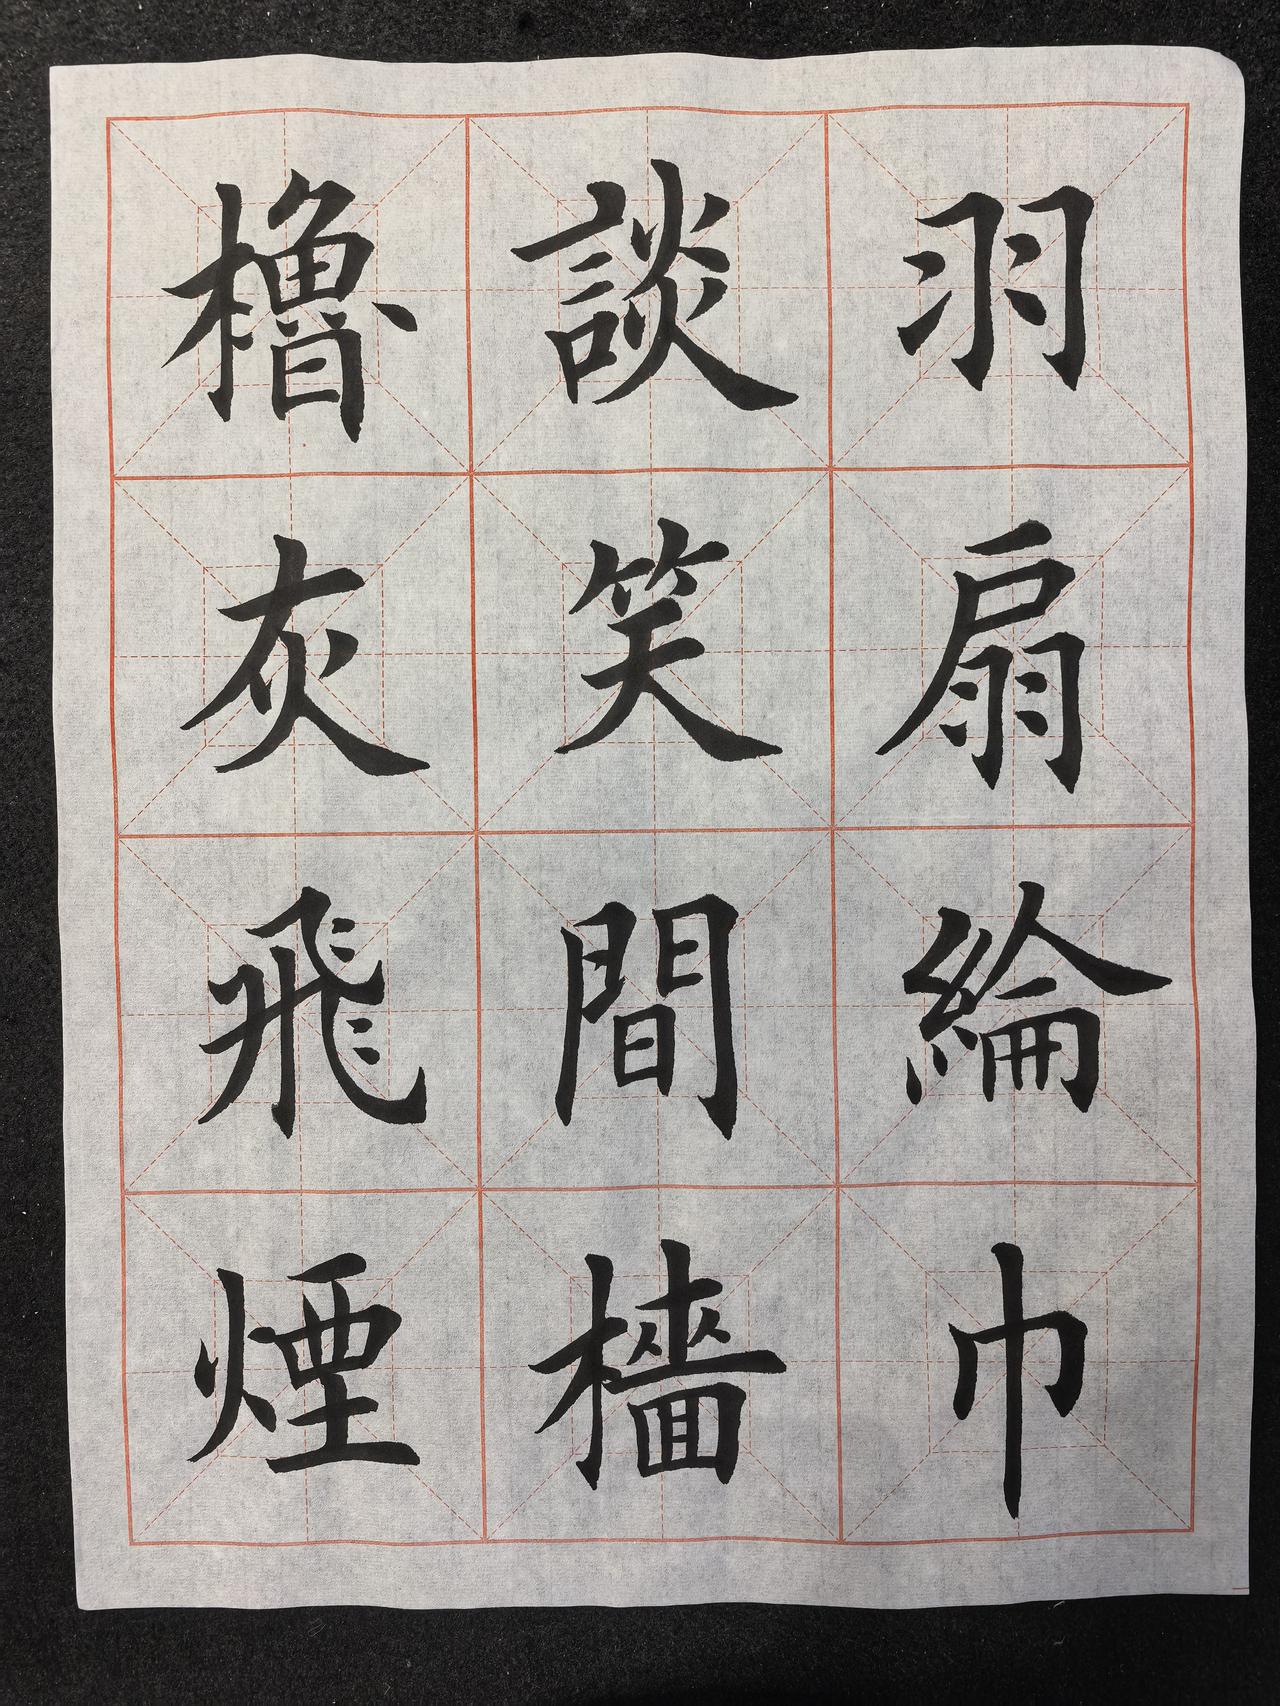 羽扇綸巾
談笑間檣
櫓灰飛煙